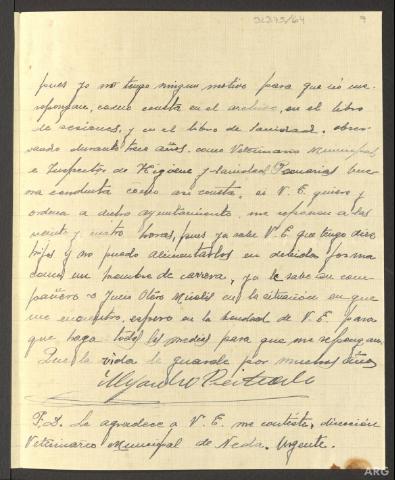 31275/64
9
pues yo no tengo ningun motivo para que no me
repongan, como consta en el archivo, en el libro
de sesiones, y en el libro de Sanidad, obser-
vando durante trece años, como Veterinario Municipal
e Inspector de Higiene y Sanidad Pecuarias bue-
na conducta como asi consta, si V. E. quiere y
ordena a dicho ayuntamiento, me reponen a las
veinte y cuatro horas, pues ya sabe V. E. que tengo diez
hijos y no puedo alimentarlos en debida forma
como un hombre de carrera, ya le sabe su com-
pañero en la situación en que
me encuentro, espero en la bondad de V. E. para
que haga todos los medios para que me repongan.
Que la vida le guarde por muchos años
P.D. Le agradece a V. E. me conteste, dirección
Veterinario Municipal de Neda. Urgente.
ARG